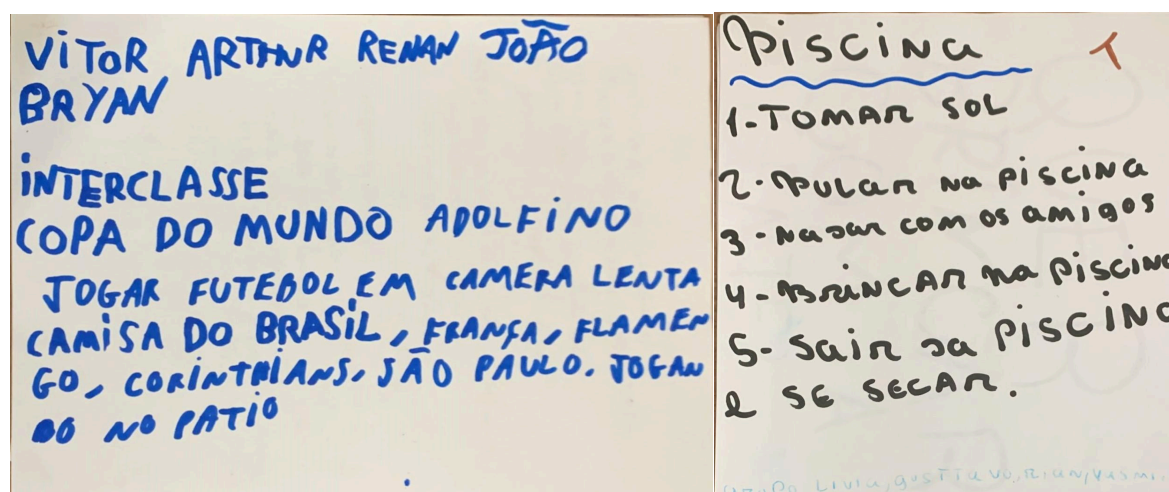 VITOR ARTHUR RENAN JOÃO
BRYAN
INTERCLASSE
COPA DO MUNDO ADOLFINO
JOGAR FUTEBOL EM CAMERA LENTA
CAMISA DO BRASIL, FRANÇA, FLAMEN
GO, CORINTHIANS, SÃO PAULO. JOGAN
DO NO PATIO
PISCINA
1-TOMAR SOL
2-PULAR NA PISCINA
3-NADAR COM OS AMIGOS
4-BRINCAR NA PISCINA
5-SAIR DA PISCINA
E SE SECAR.
LIVIA, GUSTTAVO, RIAN, YASMI